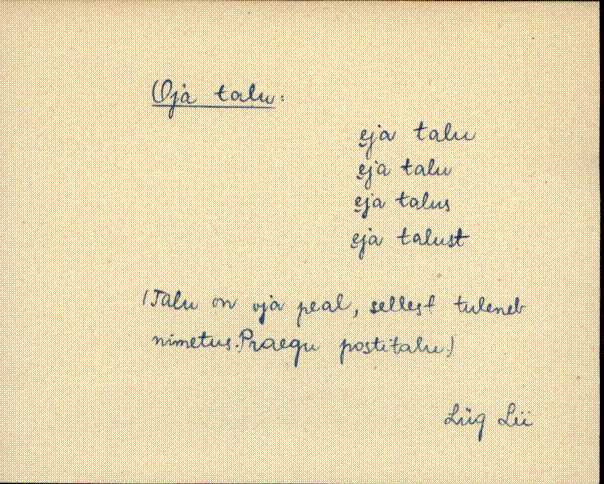 Oja talu:
ẹja talu
ẹja talu
ẹja talus
ẹja talust
(Talu on oja peal, sellest tuleneb
nimetus. Praegu postitalu.)
Lüg Lii